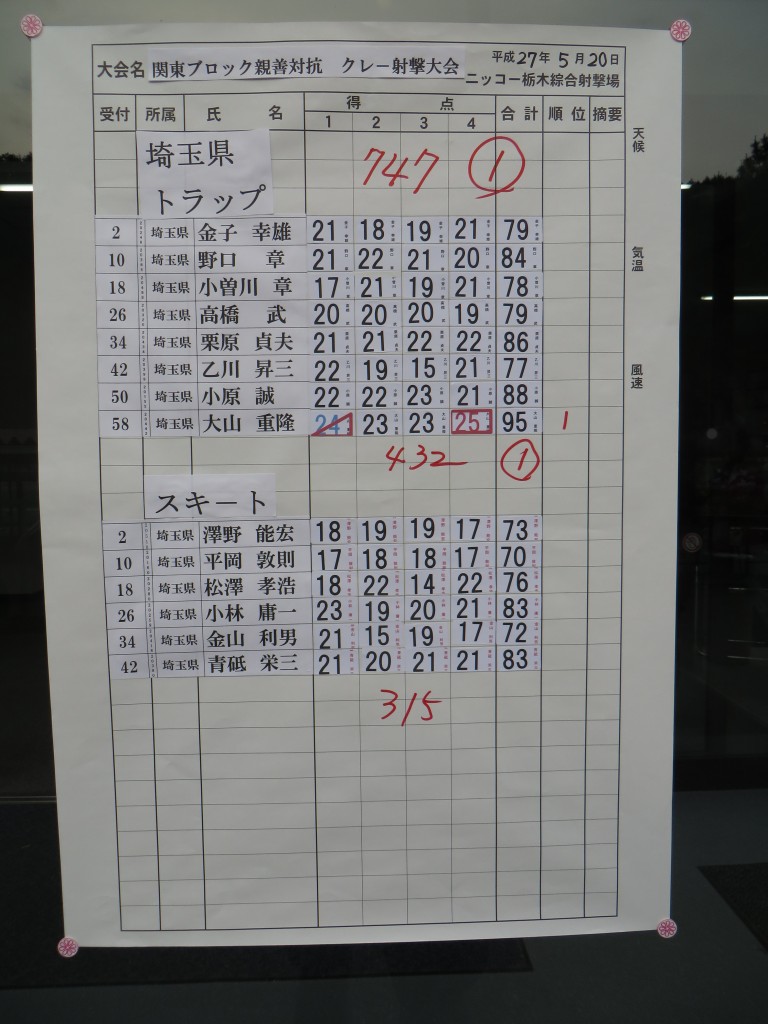 大会名 関東ブロック親善対抗 クレー射撃大会 平成27年5月20日
ニッコー栃木綜合射撃場
受付 所属 氏名 得点 合計 順位 摘要
1 2 3 4
天候
埼玉県
トラップ
747 ①
2 埼玉県 金子 幸雄 21 18 19 21 79
気温
10 埼玉県 野口 章 21 22 21 20 84
18 埼玉県 小曽川 章 17 21 19 21 78
26 埼玉県 高橋 武 20 20 20 19 79
34 埼玉県 栗原 貞夫 21 21 22 22 86
風速
42 埼玉県 乙川 昇三 22 19 15 21 77
50 埼玉県 小原 誠 22 22 23 21 88
58 埼玉県 大山 重隆 24 23 23 25 95 1
432 ①
スキート
2 埼玉県 澤野 能宏 18 19 19 17 73
10 埼玉県 平岡 敦則 17 18 18 17 70
18 埼玉県 松澤 孝浩 18 22 14 22 76
26 埼玉県 小林 庸一 23 19 20 21 83
34 埼玉県 金山 利男 21 15 19 17 72
42 埼玉県 青砥 栄三 21 20 21 21 83
315